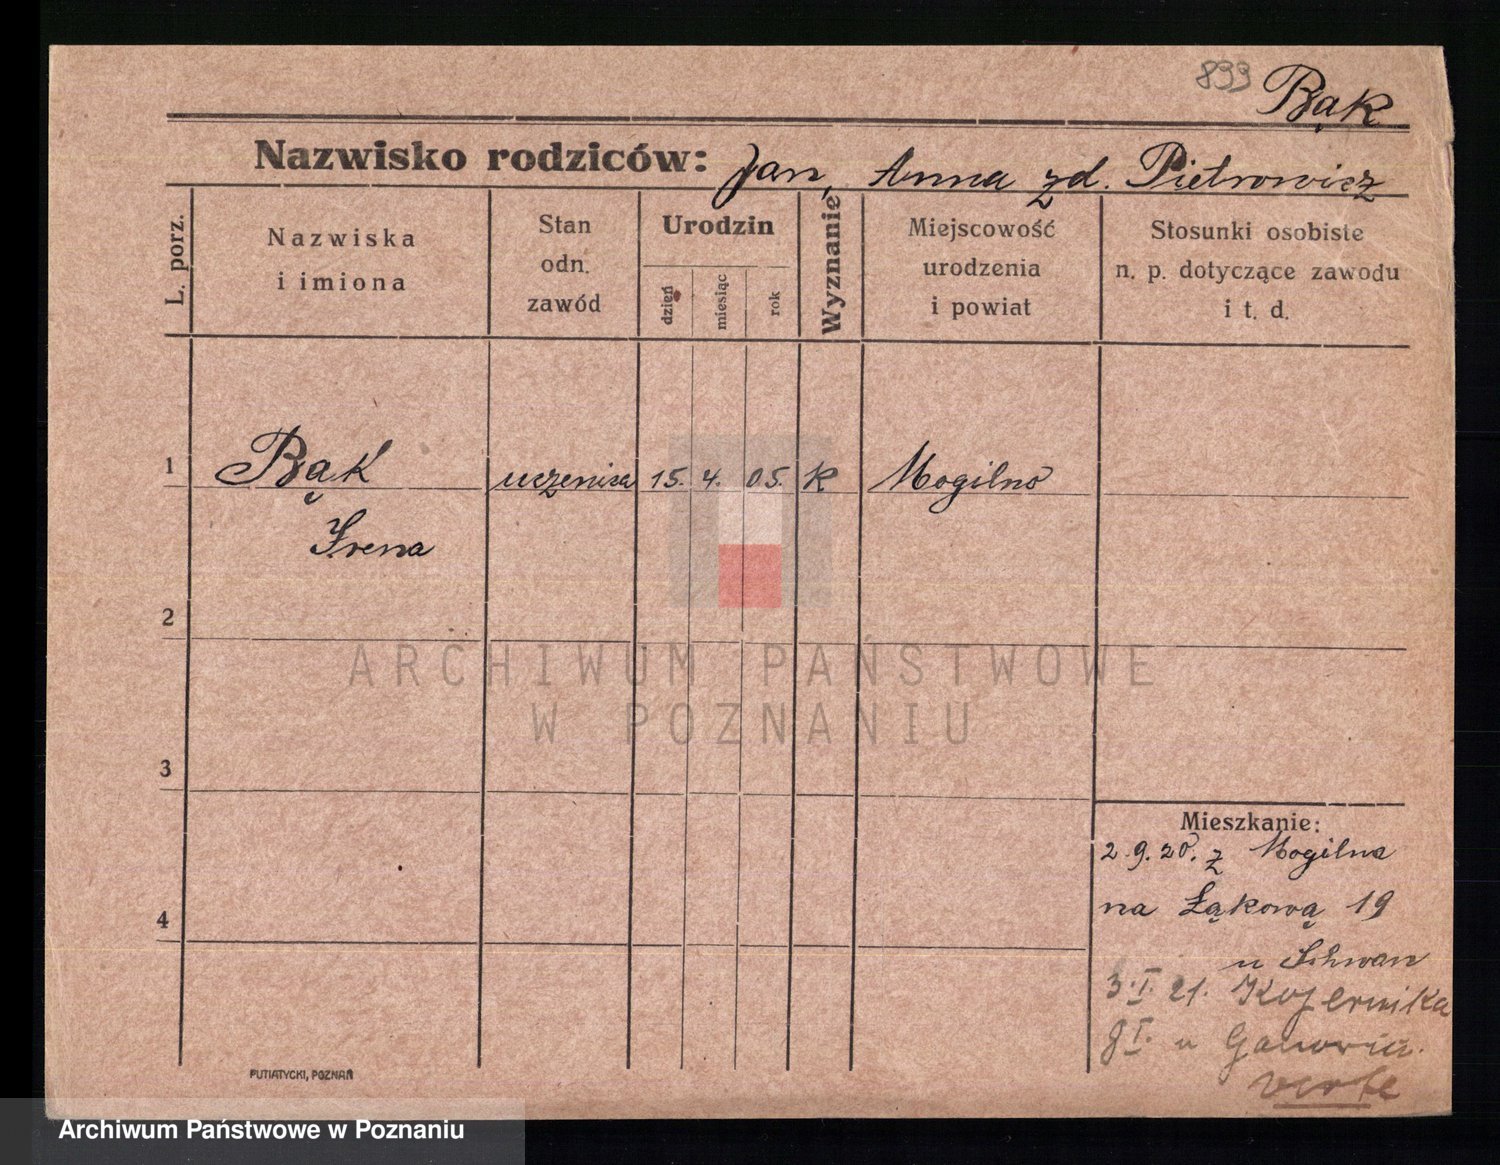 899
Bąk
Nazwisko rodziców: Jan, Anna zd. Pietrowicz
L. porz.
Nazwiska
i imiona
Stan
odn.
zawód
Urodzin
dzień
miesiąc
rok
Wyznanie
Miejscowość
urodzenia
i powiat
Stosunki osobiste
n. p. dotyczące zawodu
i t. d.
1
Bąk
uczenica
15. 4. 05.
K
Mogilno
Irena
2
ARCHIWUM PAŃSTWOWE
W POZNANIU
3
Mieszkanie:
2.9.20. z Mogilna
4
na Łąkową 19
u Schwan
3.I.21. Kopernika
8 I. u
verte
PUTIATYCKI, POZNAŃ
Archiwum Państwowe w Poznaniu